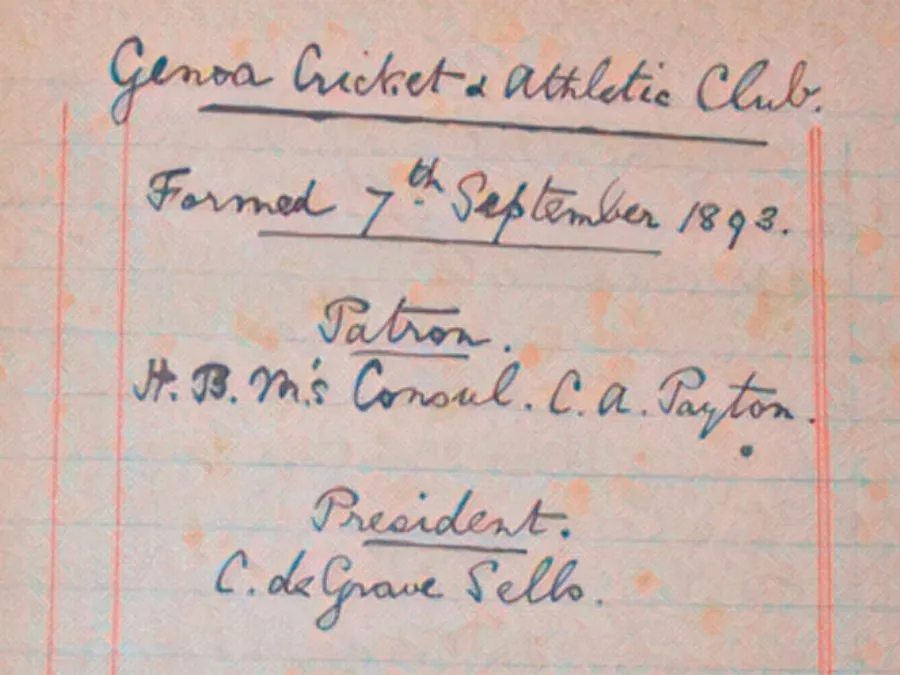 Genoa Cricket & Athletic Club.
Formed 7th September 1893.
Patron.
H. B. M's Consul. C. A. Payton.
President.
C. de Grave Sells.